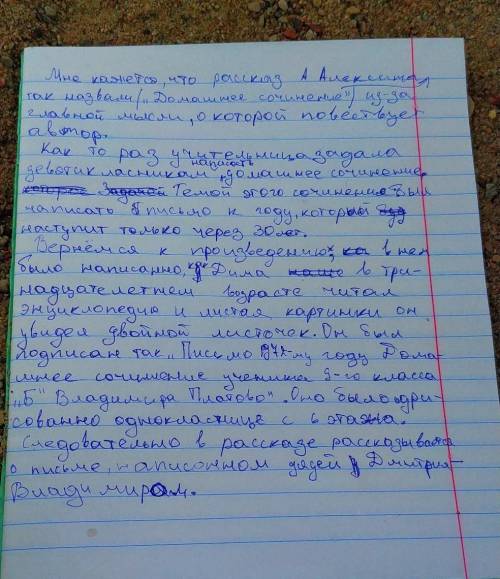 Мне кажется, что рассказ А. Алексина
так назвали („Домашнее сочинение") из-за
главной мысли, о которой повествует
автор.
Как то раз учительница задала
девятиклассникам написать домашнее сочинение.
Темой этого сочинение был
написать письмо к году, который
наступит только через 30 лет.
Вернёмся к произведению, в нем
было написанно, как Дима в три-
надцателетнем возрасте читал
энциклопедию и листая картинки он
увидел двойной листочек. Он был
подписан так „Письмо 97 -му году Дома-
шнее сочинение ученика 9-го класса
„Б" Владимира Платово". Оно было адри-
сованно однокласнице с 6 этажа.
Следовательно в рассказе рассказывается
о письме, написонном дядей Дмитрия-
Владимиром.